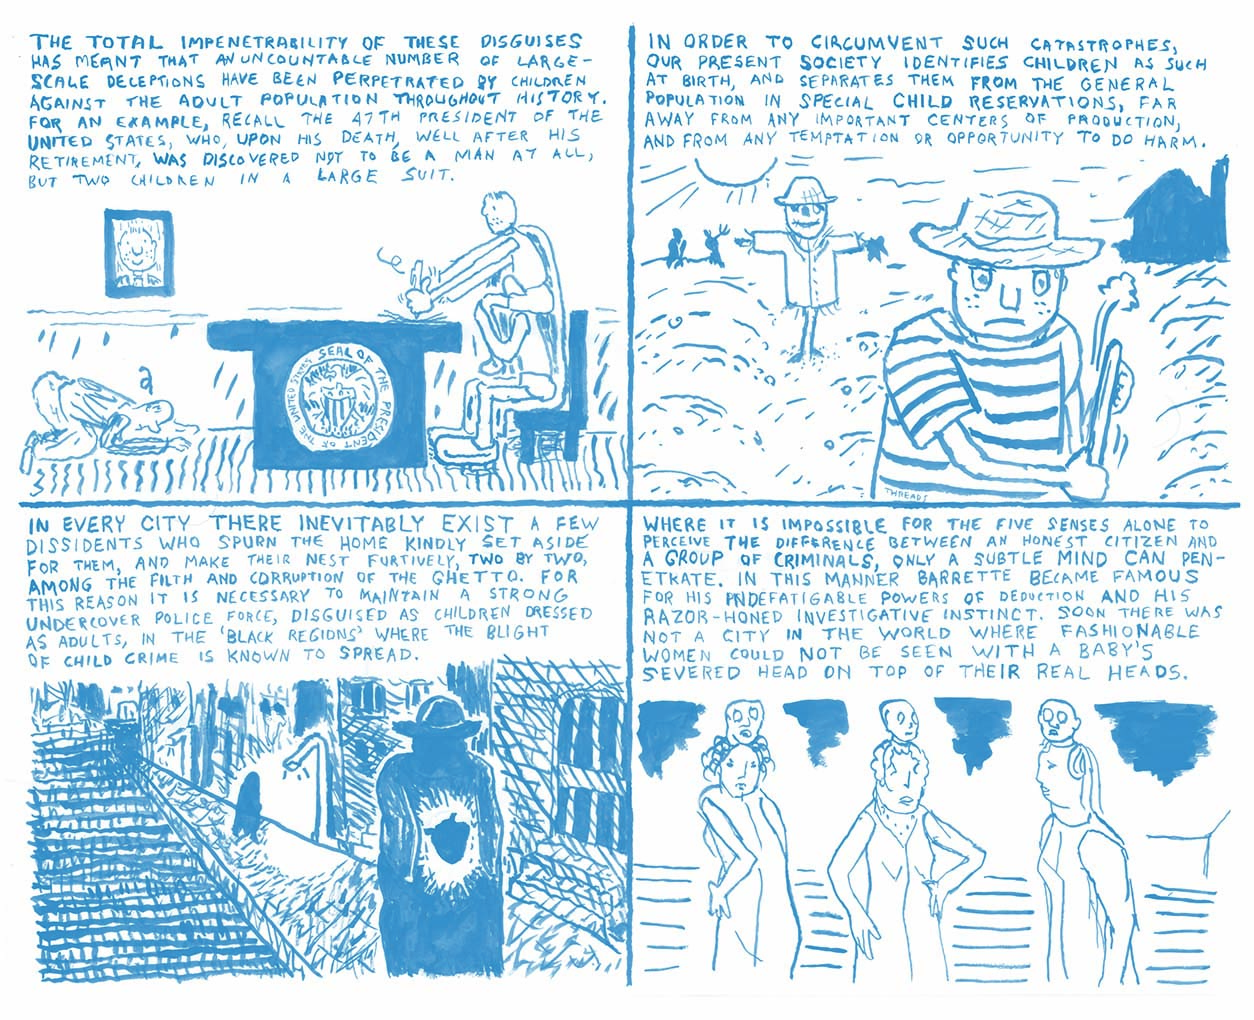 THE TOTAL IMPENETRABILITY OF THESE DISGUISES
HAS MEANT THAT AN UNCOUNTABLE NUMBER OF LARGE-
SCALE DECEPTIONS HAVE BEEN PERPETRATED BY CHILDREN
AGAINST THE ADULT POPULATION THROUGHOUT HISTORY.
FOR AN EXAMPLE, RECALL THE 47TH PRESIDENT OF THE
UNITED STATES, WHO, UPON HIS DEATH, WELL AFTER HIS
RETIREMENT, WAS DISCOVERED NOT TO BE A MAN AT ALL,
BUT TWO CHILDREN IN A LARGE SUIT.
SEAL OF THE PRESIDENT OF THE UNITED STATES
IN ORDER TO CIRCUMVENT SUCH CATASTROPHES,
OUR PRESENT SOCIETY IDENTIFIES CHILDREN AS SUCH
AT BIRTH, AND SEPARATES THEM FROM THE GENERAL
POPULATION IN SPECIAL CHILD RESERVATIONS, FAR
AWAY FROM ANY IMPORTANT CENTERS OF PRODUCTION,
AND FROM ANY TEMPTATION OR OPPORTUNITY TO DO HARM.
THREADS
IN EVERY CITY THERE INEVITABLY EXIST A FEW
DISSIDENTS WHO SPURN THE HOME KINDLY SET ASIDE
FOR THEM, AND MAKE THEIR NEST FURTIVELY, TWO BY TWO,
AMONG THE FILTH AND CORRUPTION OF THE GHETTO. FOR
THIS REASON IT IS NECESSARY TO MAINTAIN A STRONG
UNDERCOVER POLICE FORCE, DISGUISED AS CHILDREN DRESSED
AS ADULTS, IN THE 'BLACK REGIONS' WHERE THE BLIGHT
OF CHILD CRIME IS KNOWN TO SPREAD.
WHERE IT IS IMPOSSIBLE FOR THE FIVE SENSES ALONE TO
PERCEIVE THE DIFFERENCE BETWEEN AN HONEST CITIZEN AND
A GROUP OF CRIMINALS, ONLY A SUBTLE MIND CAN PEN-
ETRATE. IN THIS MANNER BARRETTE BECAME FAMOUS
FOR HIS INDEFATIGABLE POWERS OF DEDUCTION AND HIS
RAZOR-HONED INVESTIGATIVE INSTINCT. SOON THERE WAS
NOT A CITY IN THE WORLD WHERE FASHIONABLE
WOMEN COULD NOT BE SEEN WITH A BABY'S
SEVERED HEAD ON TOP OF THEIR REAL HEADS.